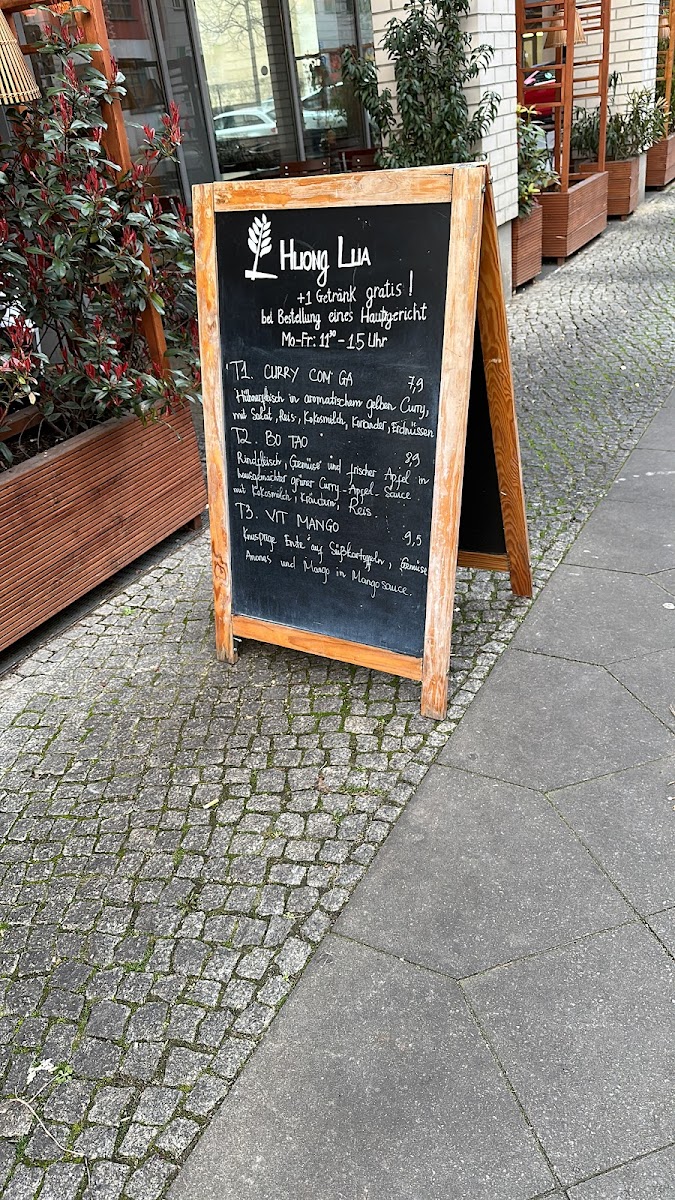 Huong Lua
+1 Getränk gratis!
bei Bestellung eines Hauptgericht
Mo-Fr: 11³⁰ - 15 Uhr
T1. CURRY COM GA 7,9
Hühnerfleisch in aromatischem gelben Curry,
mit Salat, Reis, Kokosmilch, Koriander, Erdnüssen
T2. BO TAO 8,9
Rindfleisch, Gemüse und frischer Apfel in
hausgemachter grüner Curry-Apfel Sauce
mit Kokosmilch, Kräutern, Reis.
T3. VIT MANGO 9,5
Knusprige Ente auf Süßkartoffeln, Gemüse
Ananas und Mango in Mangosauce.